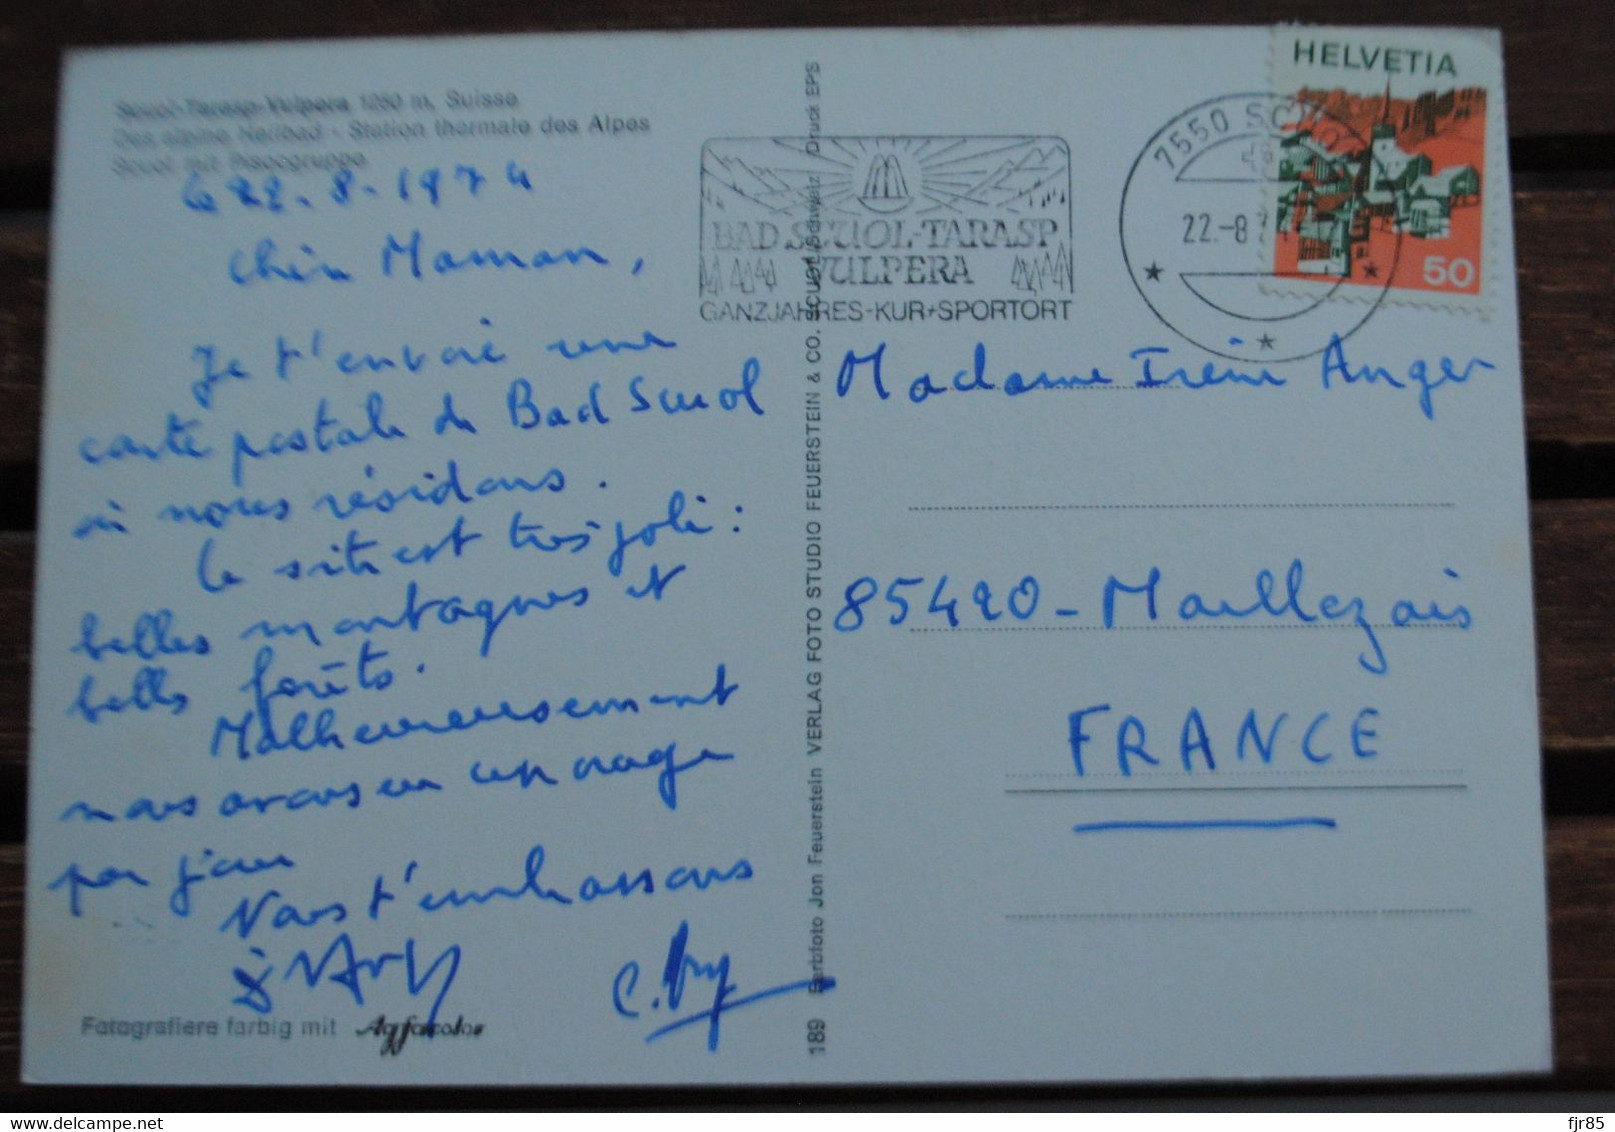 Scuol-Tarasp-Vulpera 1250 m, Suisse
Das alpine Heilbad - Station thermale des Alpes
Scuol mit Pisocgruppe
le 22.8.1974
Chère Maman,
Je t'envoie une
carte postale de Bad Scuol
où nous résidons.
Le site est très joli :
belles montagnes et
belles forêts.
Malheureusement
nous avons eu un orage
par jour
Nous t'embrassons
Fotografiere farbig mit Agfacolor
189 Farbfoto Jon Feuerstein VERLAG FOTO STUDIO FEUERSTEIN & CO. SCUOL/Schweiz Druck EPS
BAD SCUOL-TARASP
VULPERA
GANZJAHRES-KUR+SPORTORT
7550 SCUOL
22.-8
HELVETIA
50
Madame Irène Anger
85420 - Maillezais
FRANCE
fjr85